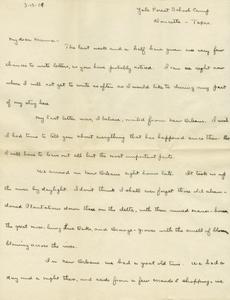 3-13-19
Yale Forest School Camp
Doucette - Texas.
My dear Mamma -
The last week and a half have given me very few
chances to write letters, as you have noticed. I can see right now
where I will not get to write as often as I would like to during my part
of my stay here.
My last letter was, I believe, mailed from New Orleans. I wish
I had time to tell you about everything that has happened since then but
I will have to leave out all but the most important parts.
We arrived in New Orleans right around last. It took us up
the river by daylight. I don't think I shall ever forget those old aban-
doned Plantations down there on the delta, with their ruined manor-houses
the great moss hung live Oaks, and Orange-groves with the smell of blossoms
blowing across the river.
In New Orleans we had a great old time. We had a
day and a night there, and aside from a few errands & shopping, we